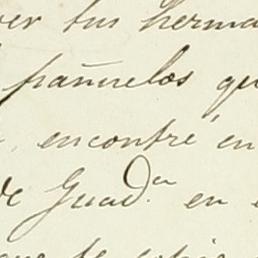 ver tus herma
pañuelos qu
encontré en
de Guad.ª en
que te